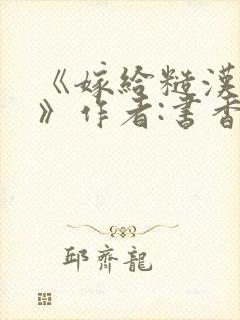 《嫁给糙漢
》作者:書香
邱齊龍